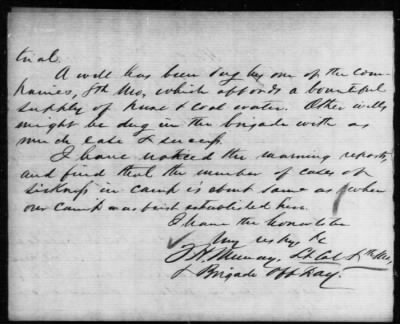 trial.
A well has been dug by one of the com-
panies, 8th Mo, which affords a bountiful
supply of pure & cool water. Other wells
might be dug in the brigade with as
much ease & success.
I have noticed the morning reports,
and find that the number of cases of
sickness in camp is about same as when
our camp was first established here.
I have the honor to be
Very resptly, &c
Murray, Lt Col 8th Mo,
& Brigade Off Day.